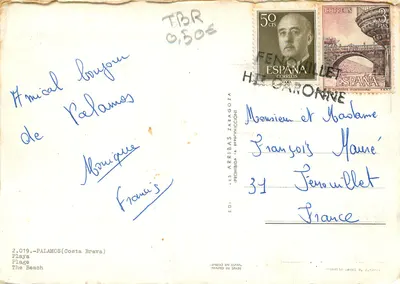 TBR
0,50€
50
CTS
ESPAÑA
CORREOS
3
PTAS
ESPAÑA
FENOUILLET
HTE GARONNE
Amical bonjour
de Palamos
Monique
Francis
Monsieur et Madame
François Mauré
31 Fenouillet
France
ARRIBAS ZARAGOZA
2.019.-PALAMOS(Costa Brava)
Playa
Plage
The Beach